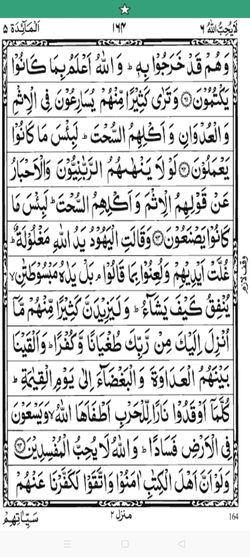 لَا يُحِبُّ اللهُ ٦ ١٦٤ اَلْمَآئِدَة ٥
وَهُمْ قَدْ خَرَجُوْا بِهٖ ؕ وَ اللهُ اَعْلَمُ بِمَا كَانُوْا
يَكْتُمُوْنَ ﴿۶۱﴾ وَتَرٰى كَثِيْرًا مِّنْهُمْ يُسَارِعُوْنَ فِى الْاِثْمِ
وَ الْعُدْوَانِ وَ اَكْلِهِمُ السُّحْتَ ؕ لَبِئْسَ مَا كَانُوْا
يَعْمَلُوْنَ ﴿۶۲﴾ لَوْ لَا يَنْهٰىهُمُ الرَّبّٰنِيُّوْنَ وَ الْاَحْبَارُ
عَنْ قَوْلِهِمُ الْاِثْمَ وَ اَكْلِهِمُ السُّحْتَ ؕ لَبِئْسَ مَا
كَانُوْا يَصْنَعُوْنَ ﴿۶۳﴾ وَقَالَتِ الْيَهُوْدُ يَدُ اللهِ مَغْلُوْلَةٌ ؕ
وقف لازم
غُلَّتْ اَيْدِيْهِمْ وَ لُعِنُوْا بِمَا قَالُوْا ۘ بَلْ يَدٰهُ مَبْسُوْطَتٰنِ ۙ
يُنْفِقُ كَيْفَ يَشَآءُ ؕ وَ لَيَزِيْدَنَّ كَثِيْرًا مِّنْهُمْ مَّاۤ
اُنْزِلَ اِلَيْكَ مِنْ رَّبِّكَ طُغْيَانًا وَّ كُفْرًا ؕ وَ اَلْقَيْنَا
بَيْنَهُمُ الْعَدَاوَةَ وَ الْبَغْضَآءَ اِلٰى يَوْمِ الْقِيٰمَةِ ؕ
كُلَّمَاۤ اَوْقَدُوْا نَارًا لِّلْحَرْبِ اَطْفَاَهَا اللهُ ۙ وَ يَسْعَوْنَ
فِى الْاَرْضِ فَسَادًا ؕ وَ اللهُ لَا يُحِبُّ الْمُفْسِدِيْنَ ﴿۶۴﴾
وَلَوْ اَنَّ اَهْلَ الْكِتٰبِ اٰمَنُوْا وَ اتَّقَوْا لَكَفَّرْنَا عَنْهُمْ
منزل ٢ سَيِّاٰتِهِمْ
164